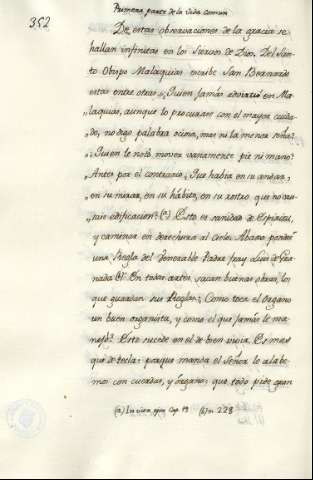 Primera parte de la vida comun
352
De estas observaciones de la gracia se
hallan infinitas en los Siervos de Dios. Del San-
to Obispo Malaquias escribe San Bernardo
estas entre otras: ¿Quien jamás advirtió en Ma-
laquias, aunque lo procurase con el mayor cuida-
do, no digo palabra ociosa, mas ni la menor seña?
¿Quien le notó mover vanamente pie ni mano?
Antes por el contrario, ¿Que habia en su andar,
en su mirar, en su hábito, en su rostro que no cau-
sase edificacion? (a) Esto es santidad de Espiritu,
y caminar en derechura al cielo. Abaxo pondré
una Regla del Venerable Padre fray Luis de Gra-
nada (b). En todas artes, sacan buenas obras, los
que guardan sus Reglas: ¿Como toca el Organo
un buen organista, y como el que jamás le ma-
nejó? Esto sucede en el de bien vivir. Es mas
que de tecla: porque manda el Señor le alabe-
mos con cuerdas, y órgano; que todo pide gran
(a) In vita ejus Cap. 19 (b) n. 228